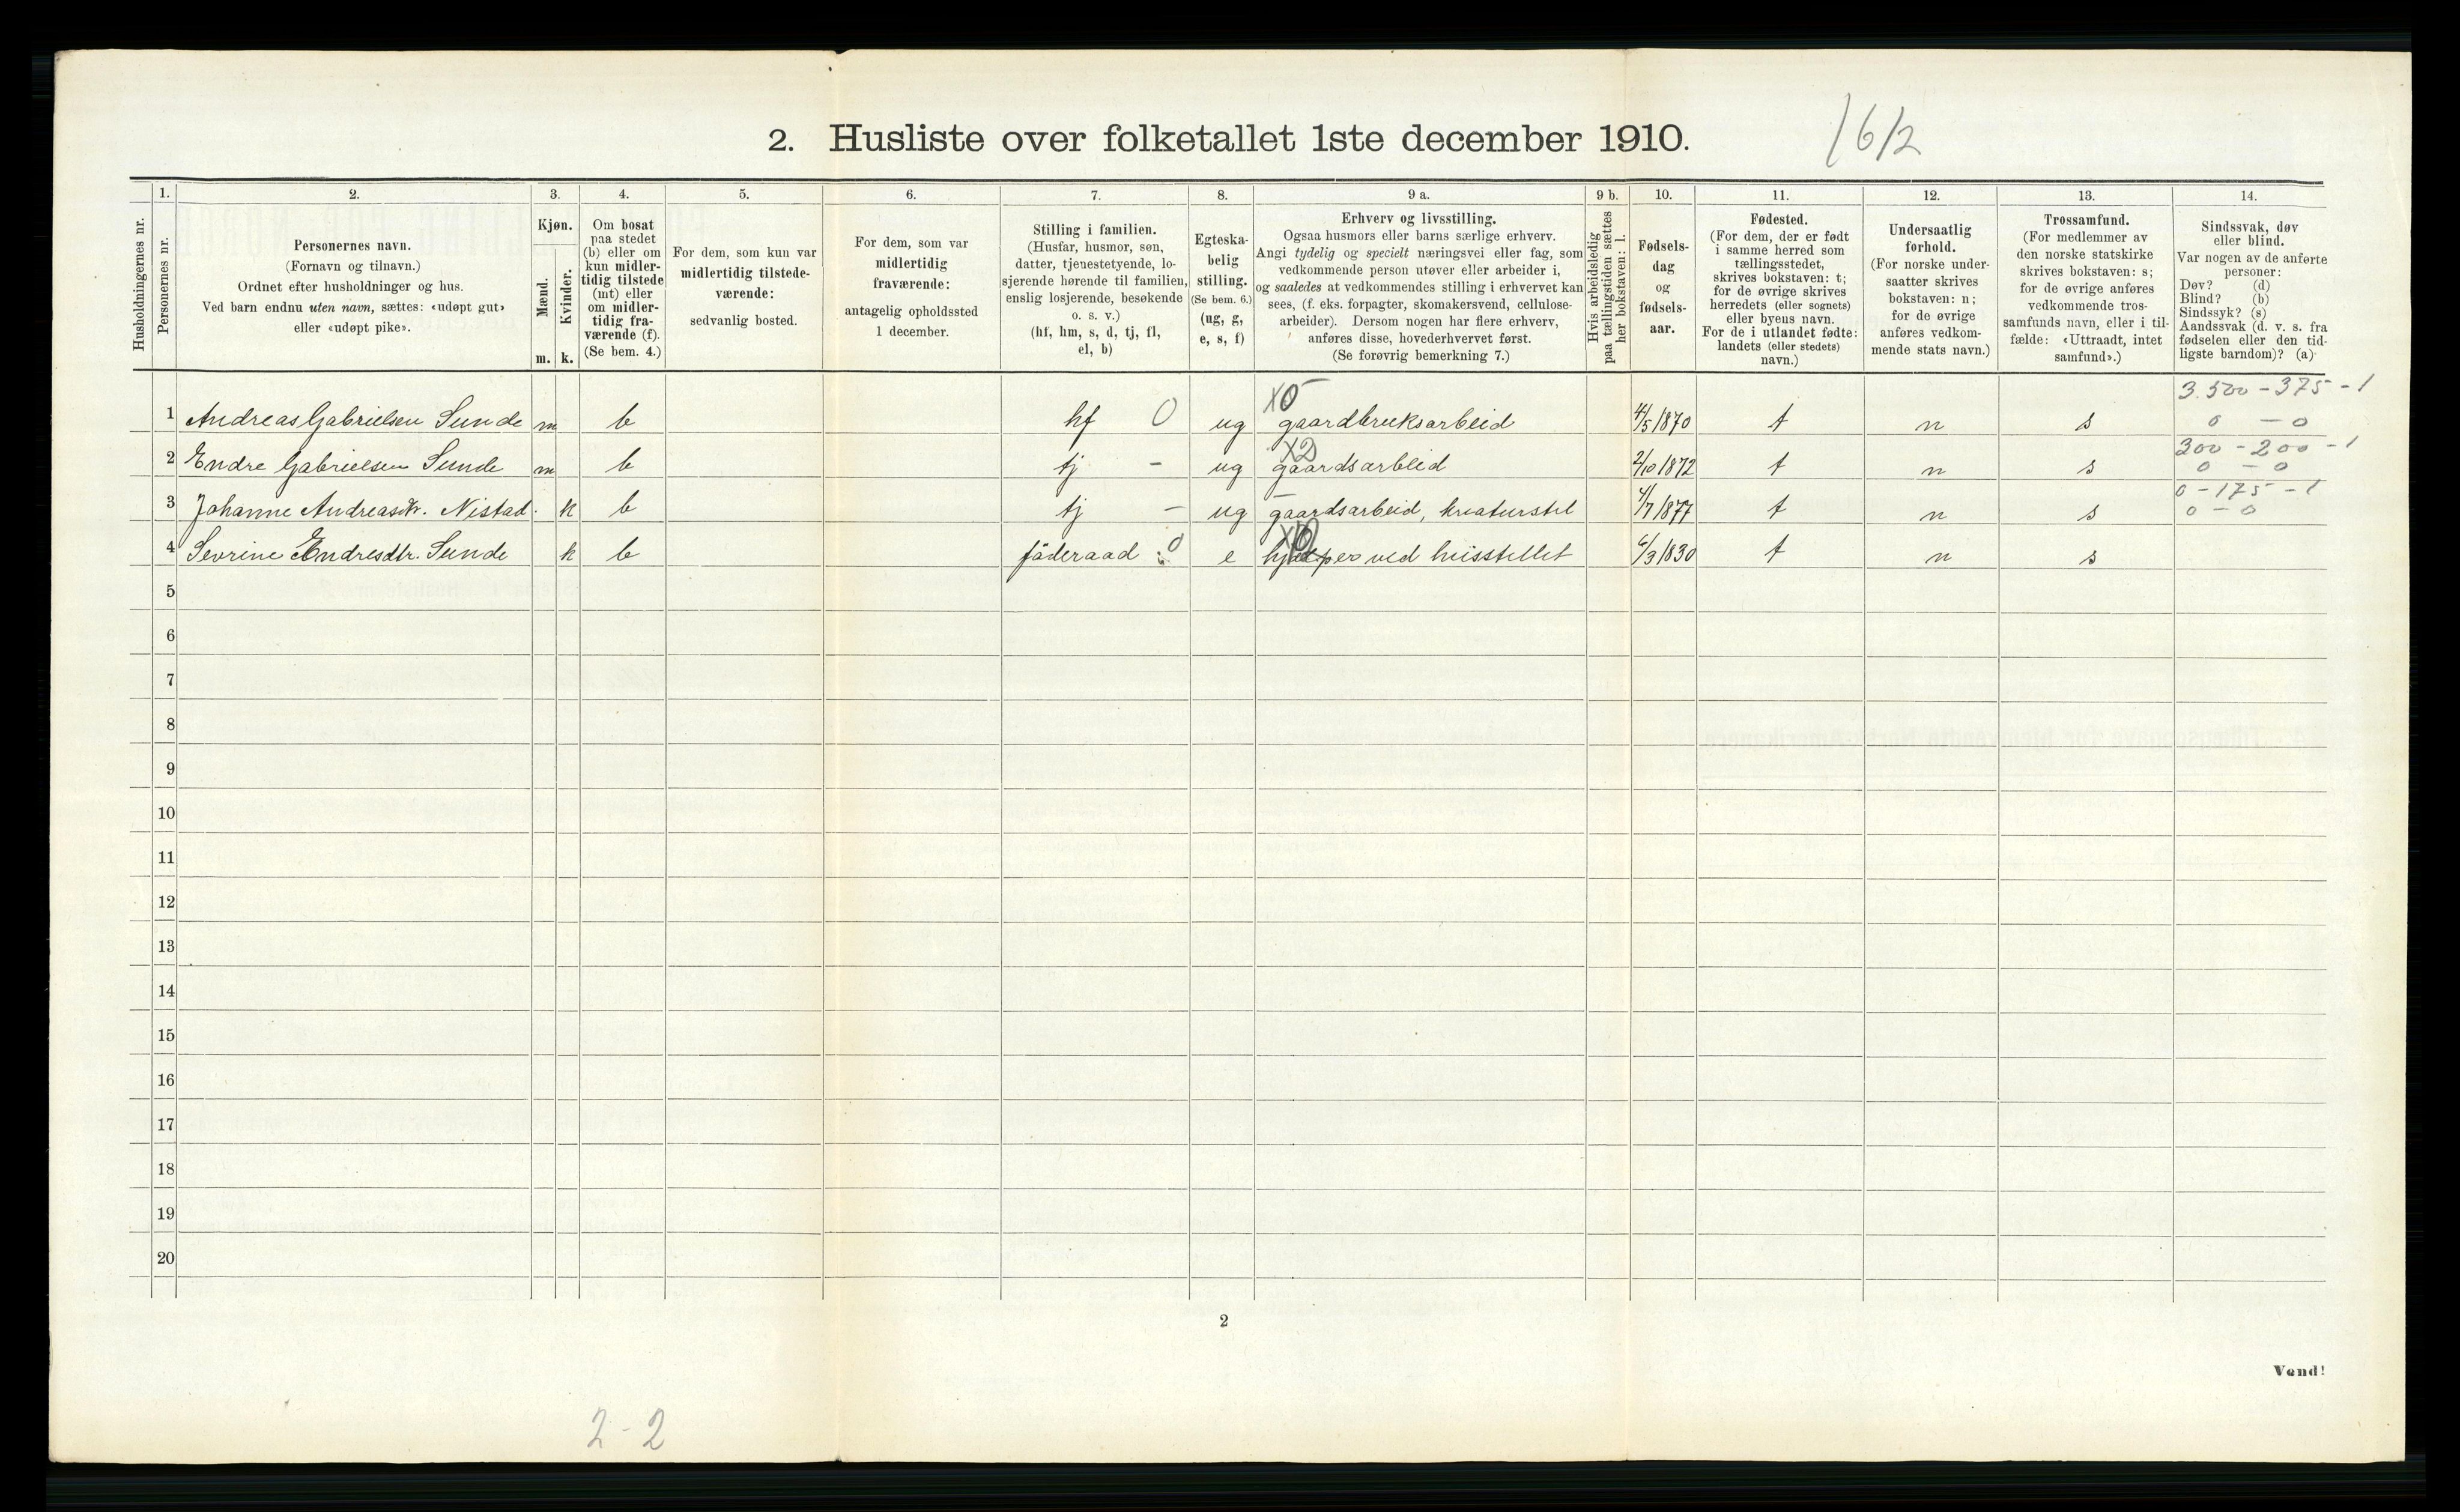 2. Husliste over folketallet 1ste december 1910.
1612
1. 2. 3. 4. 5. 6. 7. 8. 9 a. 9 b. 10. 11. 12. 13. 14.
Husholdningernes nr.
Personernes nr.
Personernes navn.
(Fornavn og tilnavn.)
Ordnet efter husholdninger og hus.
Ved barn endnu uten navn, sættes: «udøpt gut»
eller «udøpt pike».
Kjøn.
Mænd.
Kvinder.
m. k.
Om bosat
paa stedet
(b) eller om
kun midler-
tidig tilstede
(mt) eller
om midler-
tidig fra-
værende (f).
(Se bem. 4.)
For dem, som kun var
midlertidig tilstede-
værende:
sedvanlig bosted.
For dem, som var
midlertidig
fraværende:
antagelig opholdssted
1 december.
Stilling i familien.
(Husfar, husmor, søn,
datter, tjenestetyende, lo-
sjerende hørende til familien,
enslig losjerende, besøkende
o. s. v.)
(hf, hm, s, d, tj, fl,
el, b)
Egteska-
belig
stilling.
(Se bem. 6.)
(ug, g,
e, s, f)
Erhverv og livsstilling.
Ogsaa husmors eller barns særlige erhverv.
Angi tydelig og specielt næringsvei eller fag, som
vedkommende person utøver eller arbeider i,
og saaledes at vedkommendes stilling i erhvervet kan
sees, (f. eks. forpagter, skomakersvend, cellulose-
arbeider). Dersom nogen har flere erhverv,
anføres disse, hovederhvervet først.
(Se forøvrig bemerkning 7.)
Hvis arbeidsledig
paa tællingstiden sættes
her bokstaven: l.
Fødsels-
dag
og
fødsels-
aar.
Fødested.
(For dem, der er født
i samme herred som
tællingsstedet,
skrives bokstaven: t;
for de øvrige skrives
herredets (eller sognets)
eller byens navn.
For de i utlandet fødte:
landets (eller stedets)
navn.)
Undersaatlig
forhold.
(For norske under-
saatter skrives
bokstaven: n;
for de øvrige
anføres vedkom-
mende stats navn.)
Trossamfund.
(For medlemmer av
den norske statskirke
skrives bokstaven: s;
for de øvrige anføres
vedkommende tros-
samfunds navn, eller i til-
fælde: «Uttraadt, intet
samfund».)
Sindssvak, døv
eller blind.
Var nogen av de anførte
personer:
Døv? (d)
Blind? (b)
Sindssyk? (s)
Aandssvak (d. v. s. fra
fødselen eller den tid-
ligste barndom)? (a)
3.500 - 375 - 1
X0
1 Andreas Gabrielsen Sunde m b hf 0 ug gaardbruksarbeid 4/5 1870 t n s 0 - 0
X2 300 - 200 - 1
2 Endre Gabrielsen Sunde m b tj - ug gaardsarbeid 2/10 1872 t n s 0 - 0
0 - 175 - 1
3 Johanne Andreasdtr. Nistad. k b tj - ug gaardsarbeid, kreaturstel 4/7 1877 t n s 0 - 0
4 Sevrine Endresdtr. Sunde k b föderaad 0 e hjælper ved husstellet 6/3 1830 t n s
5
6
7
8
9
10
11
12
13
14
15
16
17
18
19
20
2
Vend!
2 - 2